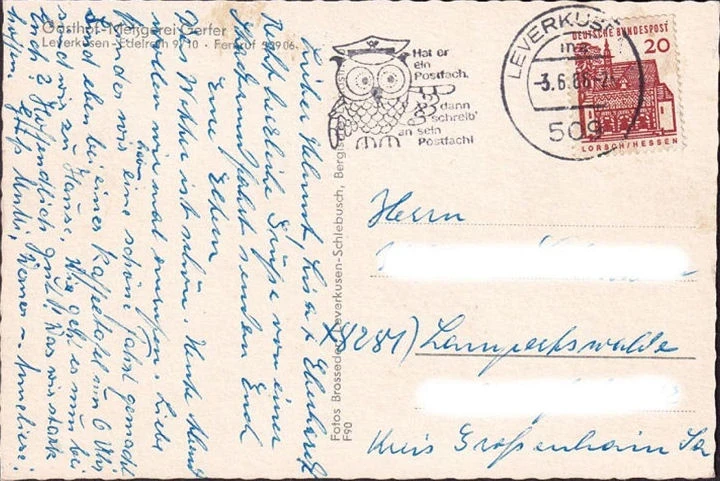 Gasthof - Metzgerei Gerfer
Leverkusen - Edelrath 9/10 - Fernruf
Lieber Helmut, Lisa + Eberhard
Recht herzliche Grüße von einer
senden Euch
Eure Eltern
Das Wetter ist schön. Heute Abend
wir mal Liebe
Kinder wir haben eine schöne Fahrt gemacht
sind eben bei einer Kaffeetafel um 6 Uhr
sind wir zu Hause. Wie geht es nun bei
Euch 2 Hoffendlich gut! Das wir stark
hoffen. Gruß Mutti, Werner u. Anneliese.
Fotos Brosseder, Leverkusen-Schlebusch, Bergis
F90
Hat er
ein
Postfach,
dann
schreib'
an sein
Postfach!
LEVERKUSEN
509
DEUTSCHE BUNDESPOST
20
LORSCH/HESSEN
Herrn
X8281) Lampertswalde
Kreis Großenhain Sa